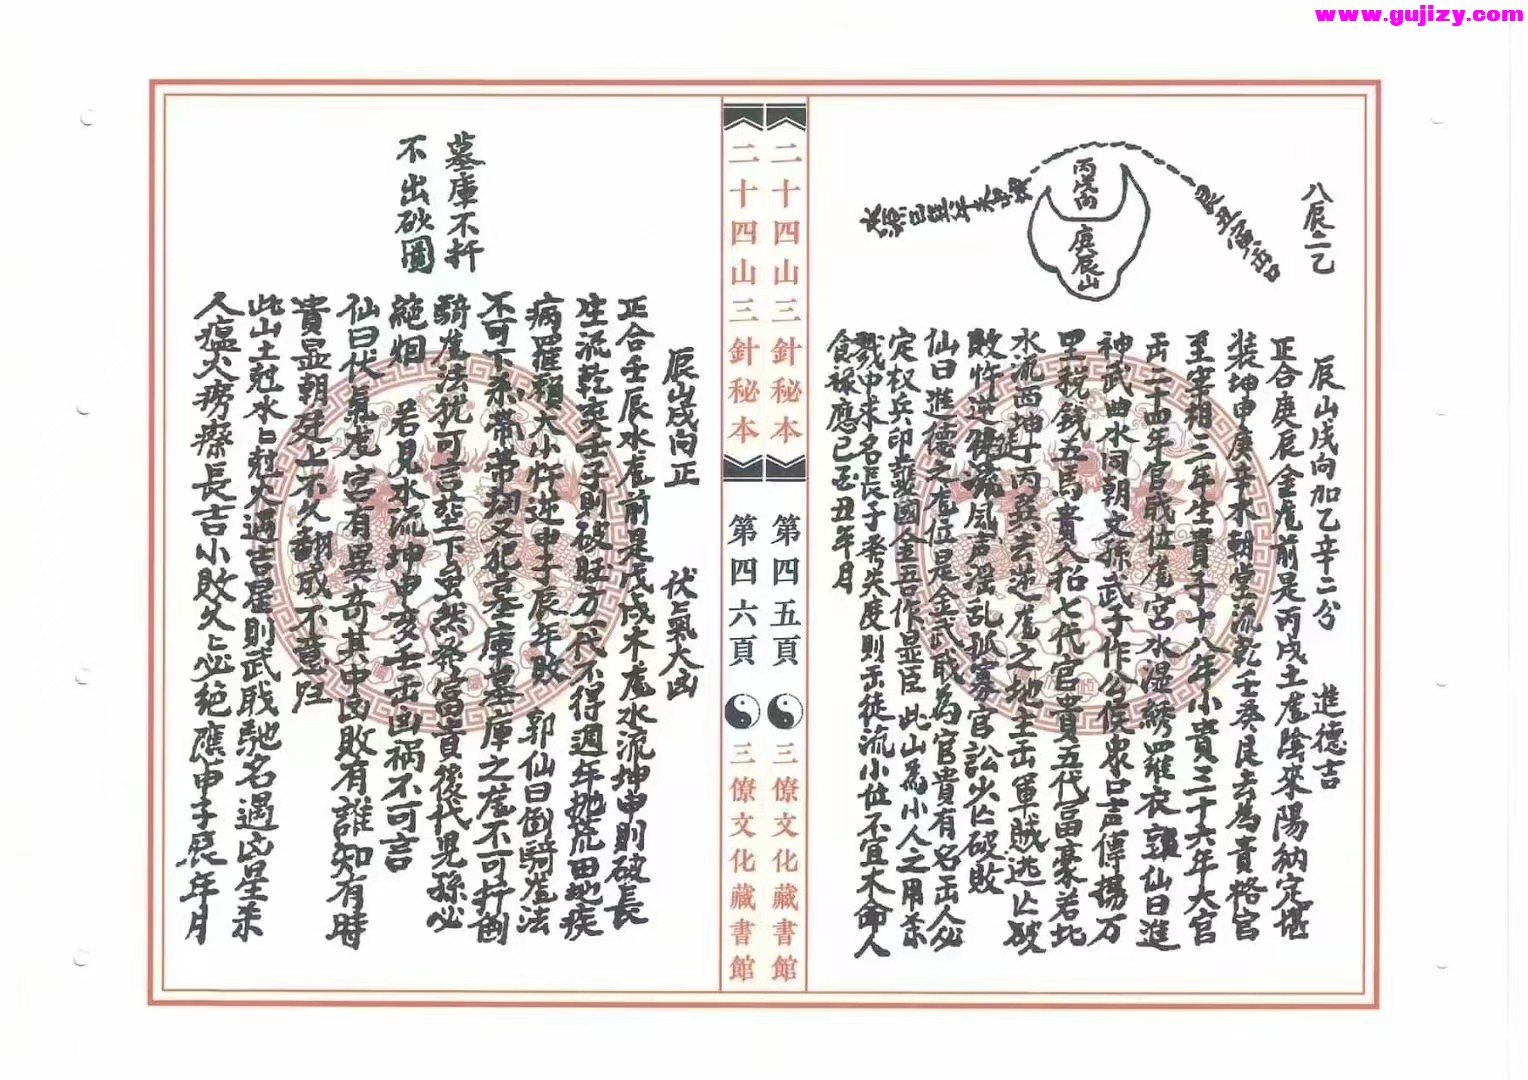 www.gujizy.com
八辰二乙
丙戌向
庚辰山
辰山戌向加乙辛二分 進德吉
正合庚辰金龙前是丙戌土龙陰來陽納定堪
裝坤申庚辛水朝堂流乾壬癸艮去為貴格官
至宰相三年生貴子十八年小貴三十六年大官
出二十四年官成位龙宮水湿綉羅衣 仙曰進
神武曲水同朝文孫武子作公侯众口声傳揚万
里税錢五馬貴人招七代官貴五代富豪若比
水流西坤 丙巽去逆龙之地主出軍賊逃亾破
敗忤逆 流風声淫乱孤寡官訟少亾破敗
仙曰進德之龙位是金武職為官貴有名出人必
定权兵印 國金五行作显臣 此山為小人之用杀
戮中求名長子 失度則出徒流小位不宜木命人
食禄應巳酉丑年月
二十四山三針秘本
第四五頁
三僚文化藏書館
二十四山三針秘本
第四六頁
三僚文化藏書館
辰山戌向正 伏氣大凶
正合壬辰水龙前是戊戌木龙水流坤申則破長
生流乾亥壬子則破旺方一代不得週年抛荒田地疾
病罹賴大小忤逆申子辰年敗 郭仙曰倒騎龙法
不可下系帶帶劫又犯墓庫墓庫之龙不可扦倒
騎龙法犹可言莝下虽然発富貴後代児孫必
絶烟 若見水流坤申亥壬出凶祸不可言
仙曰伏氣龙宮有異奇其中凶敗有誰知有時
貴显朝廷上不久翻成不意归
此山土尅水上尅火遇吉星則武戝馳名遇凶星杀
人瘟火痨瘵長吉小敗久上必絶應申子辰年月
墓庫不扦
不出破圖